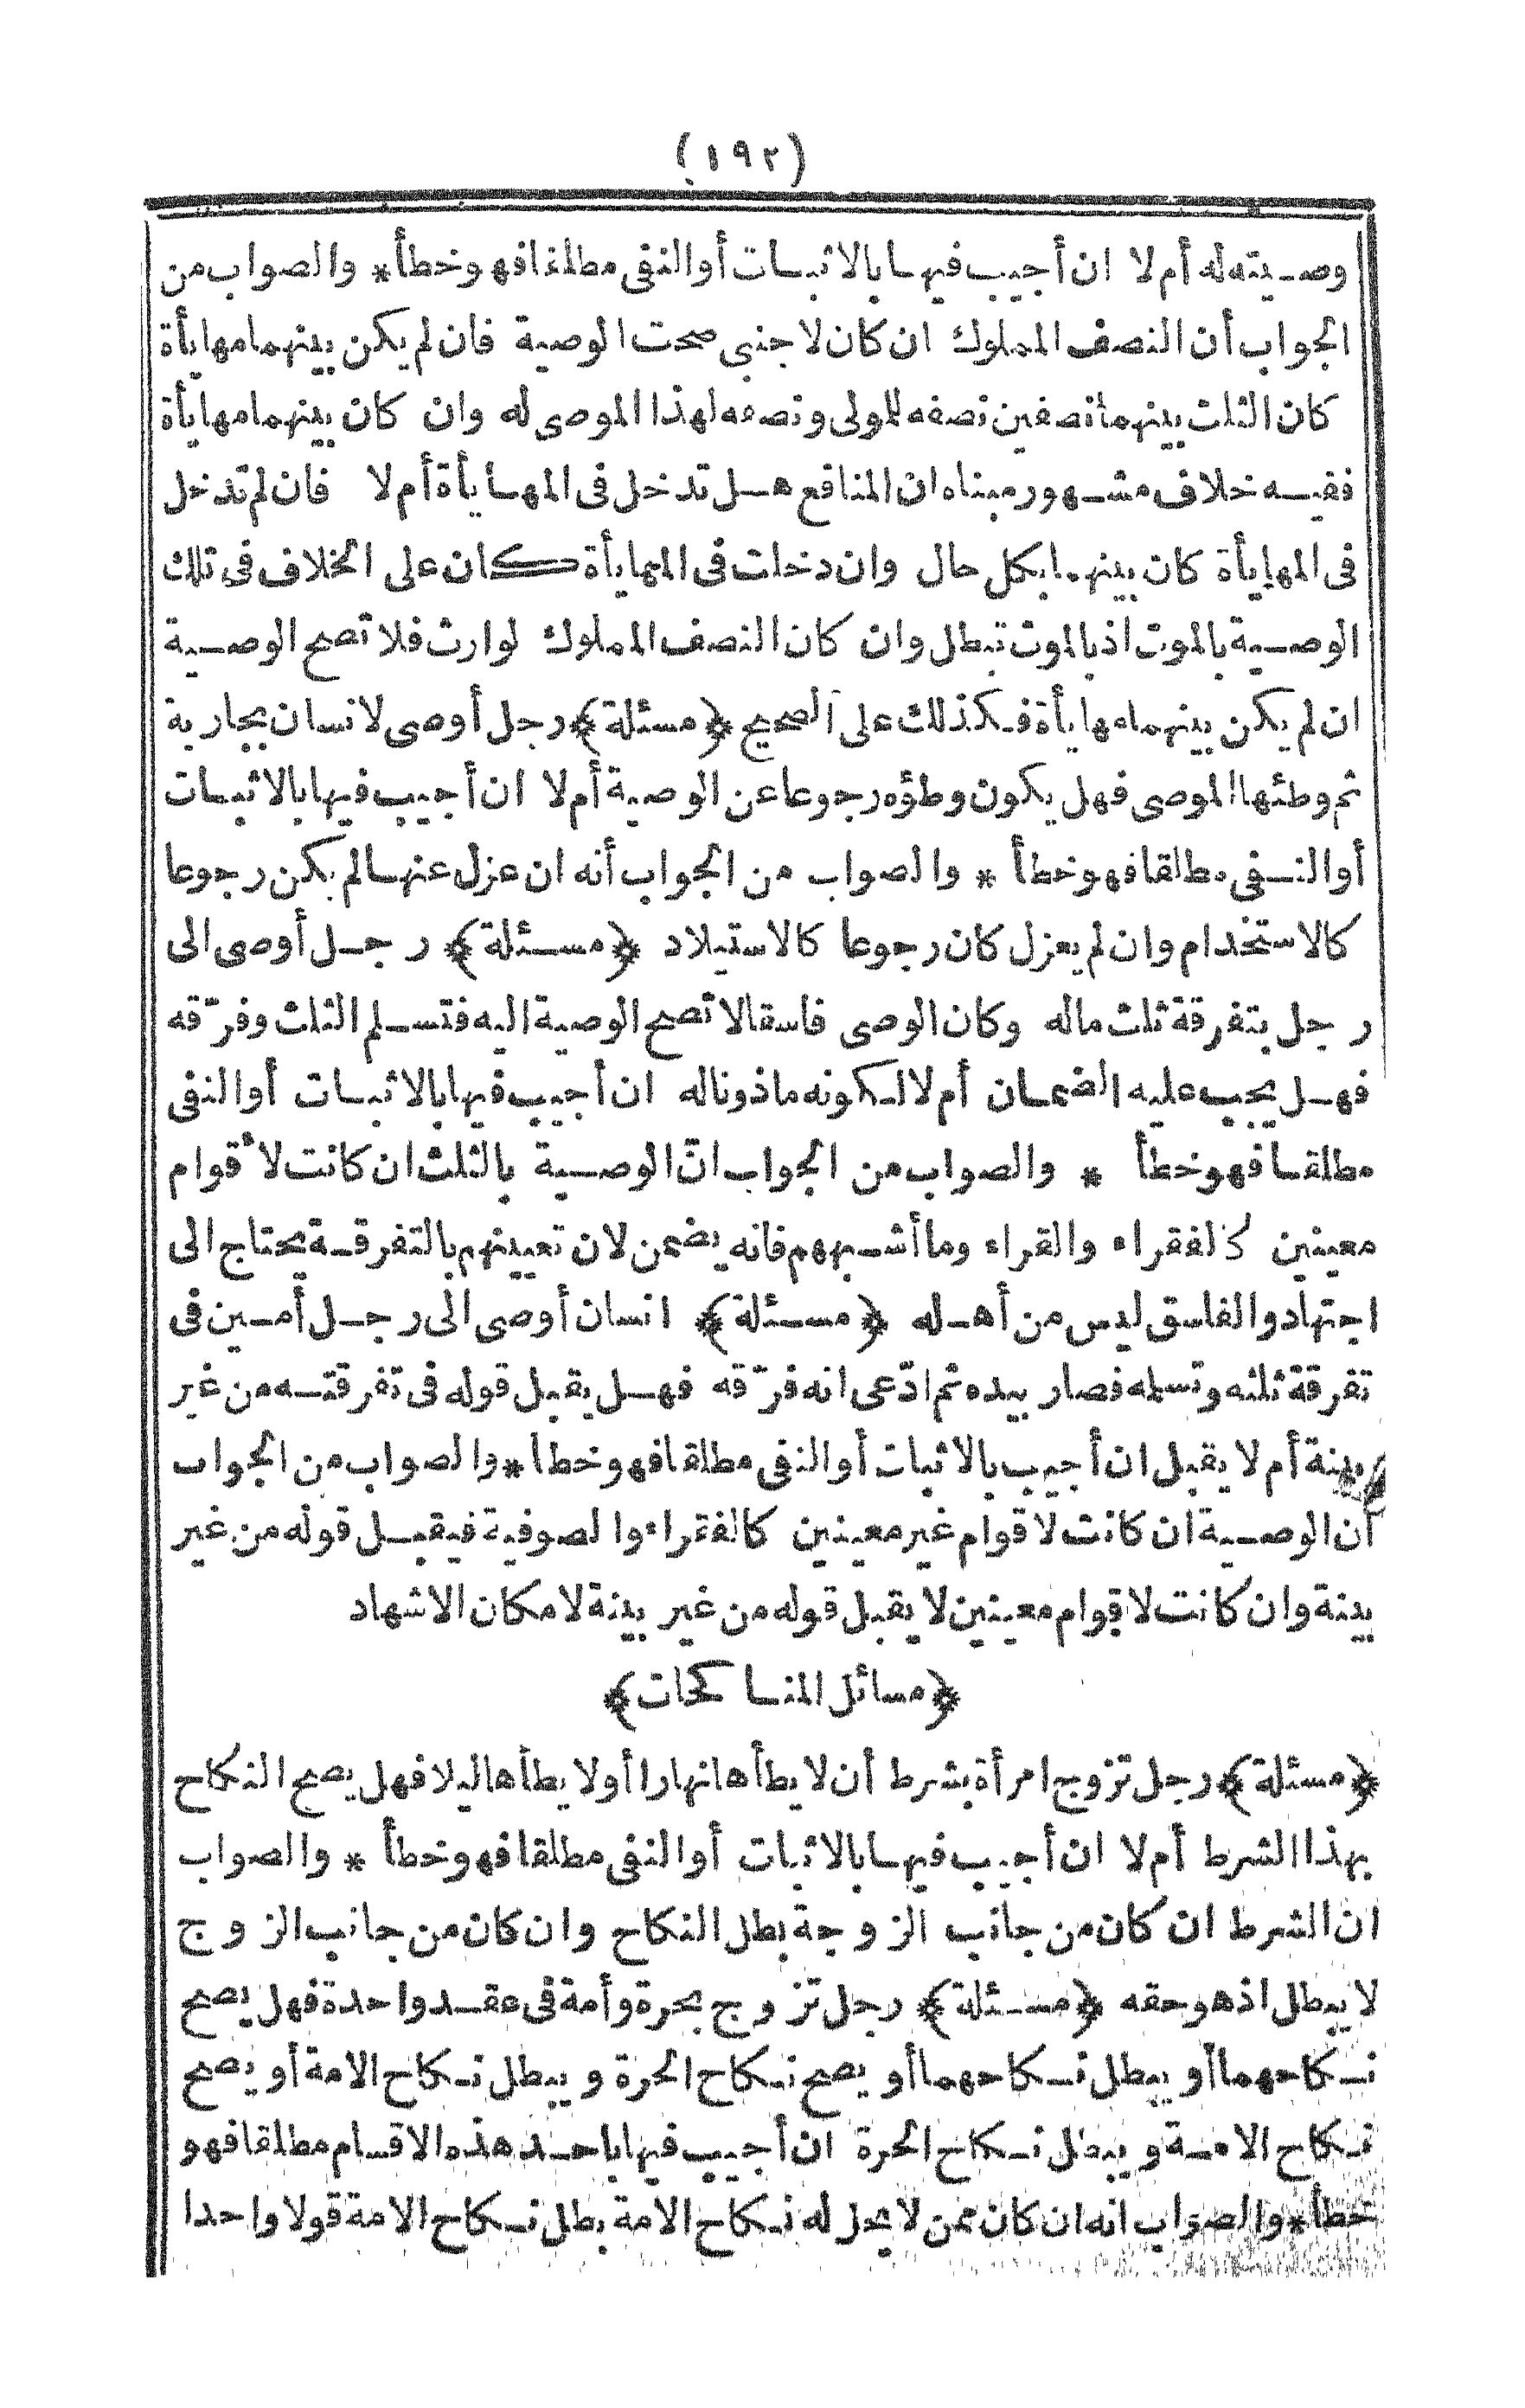 (١٩٢)
وصيته له أم لا ان أجيب فيها بالاثبات أو النفى مطلقا فهو خطأ * والصواب من
الجواب أن النصف المملوك ان كان لاجنبى صحت الوصية فان لم يكن بينهما مهايأة
كان الثلث بينهما نصفين نصفه للمولى ونصفه لهذا الموصى له وان كان بينهما مهايأة
ففيه خلاف مشهور مبناه ان المنافع هل تدخل فى المهايأة أم لا فان لم تدخل
فى المهايأة كان بينهما بكل حال وان دخلت فى المهايأة كان على الخلاف فى تلك
الوصية بالموت اذ بالموت تبطل وان كان النصف المملوك لوارث فلا تصح الوصية
ان لم يكن بينهما مهايأة فكذلك على الصحيح ﴿مسئلة﴾ رجل أوصى لانسان بجارية
ثم وطئها الموصى فهل يكون وطؤه رجوعا عن الوصية أم لا ان أجيب فيها بالاثبات
أو النفى مطلقا فهو خطأ * والصواب من الجواب أنه ان عزل عنها لم يكن رجوعا
كالاستخدام وان لم يعزل كان رجوعا كالاستيلاد ﴿مسئلة﴾ رجل أوصى الى
رجل بتفرقة ثلث ماله وكان الوصى فاسقا لا تصح الوصية اليه فتسلم الثلث وفرّقه
فهل يجب عليه الضمان أم لا لكونه ماذونا له ان أجيب فيها بالاثبات أو النفى
مطلقا فهو خطأ * والصواب من الجواب انّ الوصية بالثلث ان كانت لأقوام
معينين كالفقراء والقراء وما أشبههم فانه يضمن لان تعيينهم بالتفرقة يحتاج الى
اجتهاد والفاسق ليس من أهله ﴿مسئلة﴾ انسان أوصى الى رجل أمين فى
تفرقة ثلثه وتسلمه فصار بيده ثم ادّعى انه فرّقه فهل يقبل قوله فى تفرقته من غير
بينة أم لا يقبل ان أجيب بالاثبات أو النفى مطلقا فهو خطأ * والصواب من الجواب
أن الوصية ان كانت لاقوام غير معينين كالفقراء والصوفية فيقبل قوله من غير
بينة وان كانت لاقوام معينين لا يقبل قوله من غير بينة لامكان الاشهاد
﴿مسائل المناكحات﴾
﴿مسئلة﴾ رجل تزوج امرأة بشرط أن لا يطأها نهارا أو لا يطأها ليلا فهل يصح النكاح
بهذا الشرط أم لا ان أجيب فيها بالاثبات أو النفى مطلقا فهو خطأ * والصواب
ان الشرط ان كان من جانب الزوجة بطل النكاح وان كان من جانب الزوج
لا يبطل اذ هو حقه ﴿مسئلة﴾ رجل تزوج بحرة وأمة فى عقد واحدة فهل يصح
نكاحهما أو يبطل نكاحهما أو يصح نكاح الحرة ويبطل نكاح الامة أو يصح
نكاح الامة ويبطل نكاح الحرة ان أجيب فيها باحد هذه الاقسام مطلقا فهو
خطأ * والصواب انه ان كان ممن لا يحل له نكاح الامة بطل نكاح الامة قولا واحدا